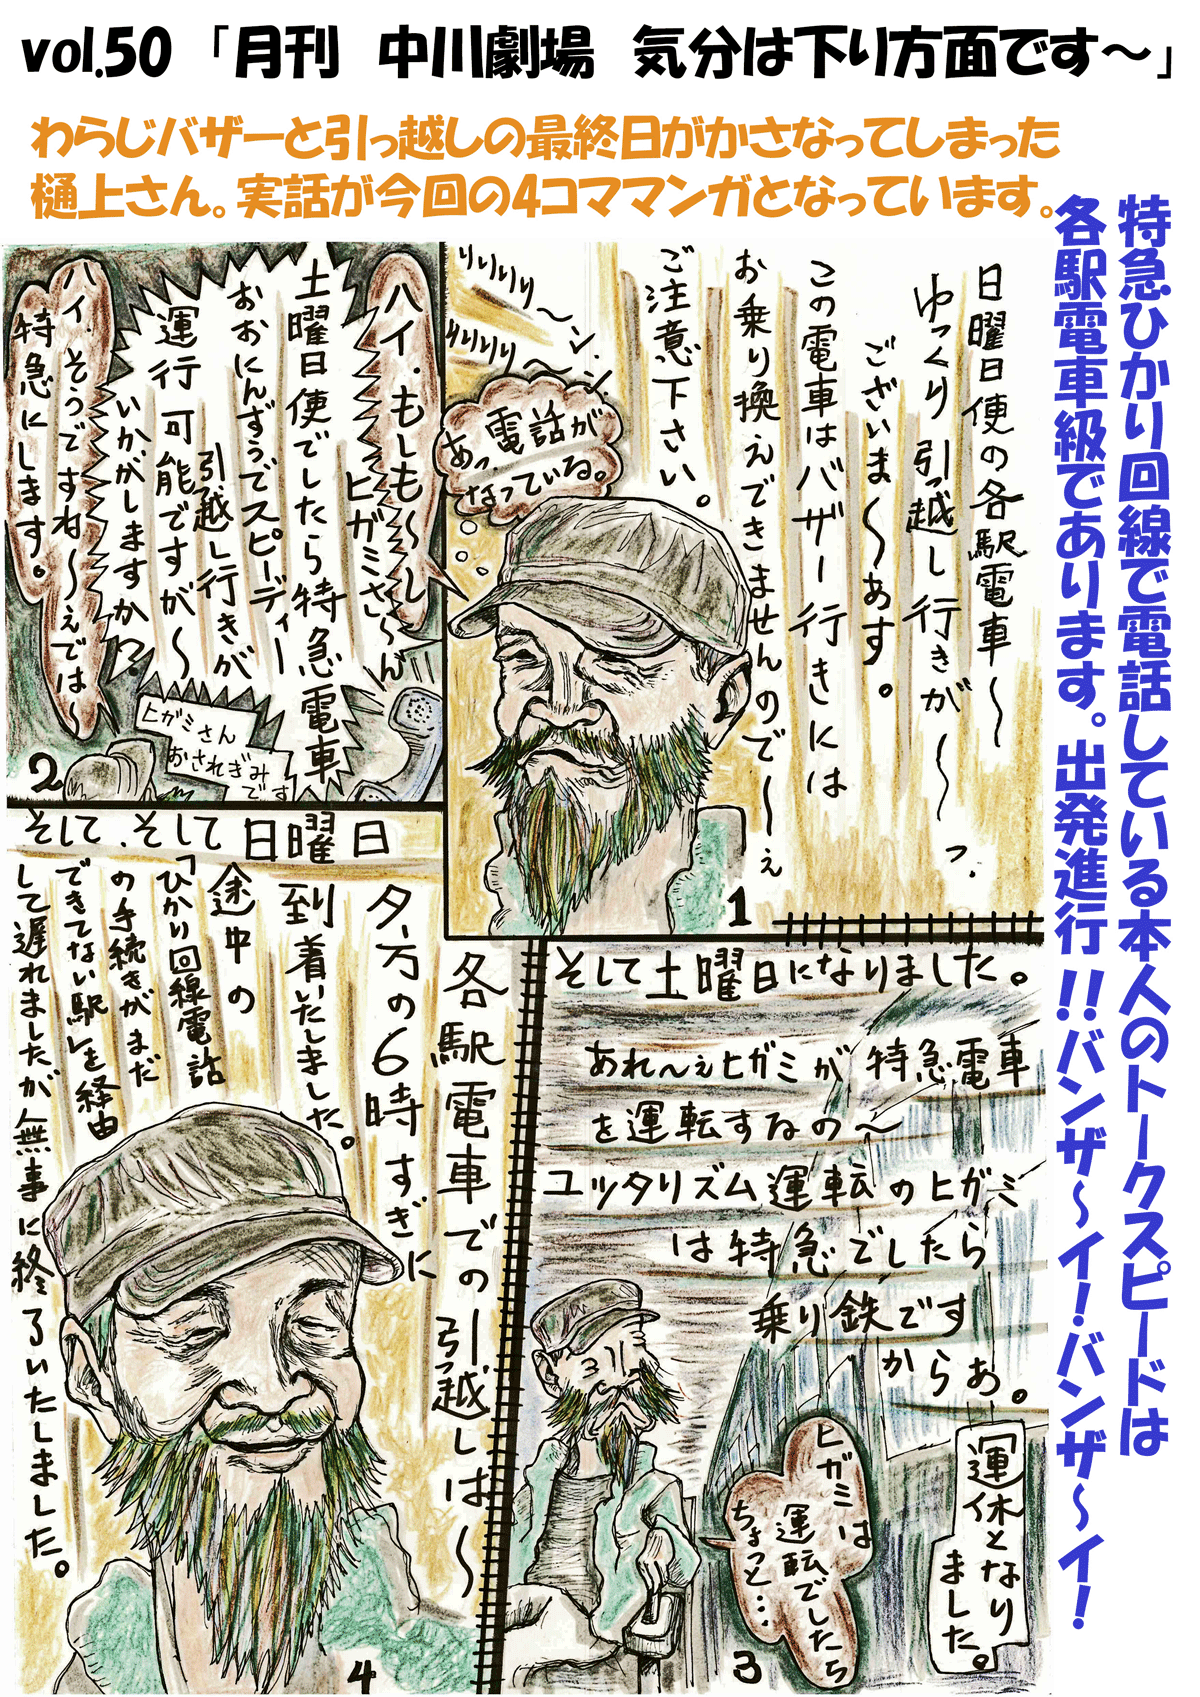 vol.50 「月刊　中川劇場　気分は下り方面です～」
わらじバザーと引っ越しの最終日がかさなってしまった
樋上さん。実話が今回の4コママンガとなっています。
特急ひかり回線で電話している本人のトークスピードは
各駅電車級であります。出発進行!!バンザ～イ!バンザ～イ!
日曜日便の各駅電車～
ゆっくり引っ越し行きが～っ.
ございま～あす。
この電車はバザー行きには
お乗り換えできませんので～ぇ
ご注意下さい。
リリリリ～ン.
リリリリ～ン
あっ電話が
なっている。
1
ハイ.もしも～し
ヒガミさ～ん
土曜日便でしたら特急電車
おおにんずぅでスピーディー
引越し行きが
運行可能ですが～
いかがしますか?
ハイ.そうですね～ぇでは～
特急にします。
ヒガミさん
おされぎみ
です
2
そして土曜日になりました。
あれ～ぇヒガミが特急電車
を運転するの～
ユッタリズム運転のヒガミ
は特急でしたら
乗り鉄です
からぁ。
ヒガミは
運転でしたら
ちょっと…
運休となり
ました。
3
そして、そして日曜日
各駅電車での引っ越しは～
夕方の6時すぎに
到着いたしました。
途中の
「ひかり回線電話
の手続きがまだ
できてない駅」を経由
して遅れましたが無事に終了いたしました。
4